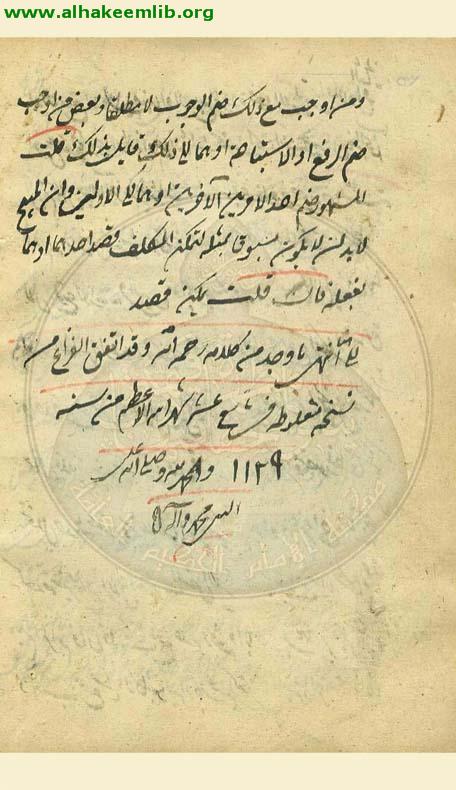 www.alhakeemlib.org
ومن اوجب مع ذلك ضم الوجوب لا مطلقا وبعض من اوجب
ضم الرفع او الاستباحة او هما الى ذلك قايل بذلك قلت
المشهور ضم احد الامرين الآخرين او هما الى الاولين وان المبيح
لا بد ان لا يكون مسبوقا بمثله لتمكن المكلف قصد احدهما او هما
بفعله فان قلت يمكن قصد
انتهى ما وجد من كلامه رحمه الله وقد اتفق الفراغ من
نسخه في عشر شهر الله الاعظم من سنه
١١٢٩ والحمد لله وصلى الله على
محمد وآله